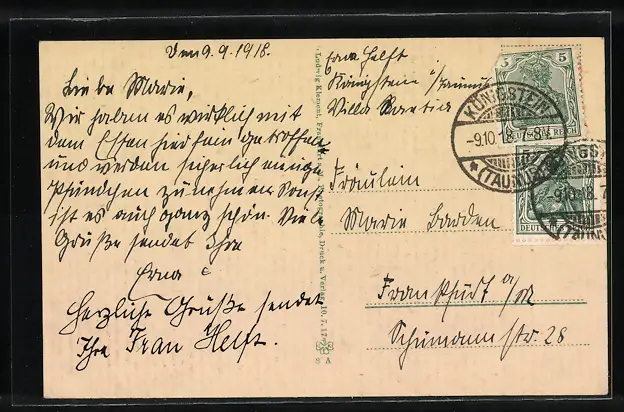 Den 9. 9. 1918.
Liebe Marie,
Wir haben es wirklich mit
dem Essen hier fein getroffen
und werden sicherlich einige
Pfündchen zunehmen. Sonst
ist es auch ganz schön. Viele
Grüße sendet Ihre
Erna
Herzliche Grüße sendet
Ihre Frau Helft.
Ludwig Klement, Frankfurt a. M. Druck u. Verlag 10. 7. 17.
8 A
Erna Helft
Königstein i/Taunus
Villa
Fräulein
Marie Barden
Frankfurt a/M
Schumannstr. 28
5 5
DEUTSCHES REICH
KÖNIGSTEIN
-9.10.18. 7-8V.
* (TAUNUS)
DEUTSCHES REICH
KÖNIGSTEIN
-9.10.18. 7
* (TAUNUS)